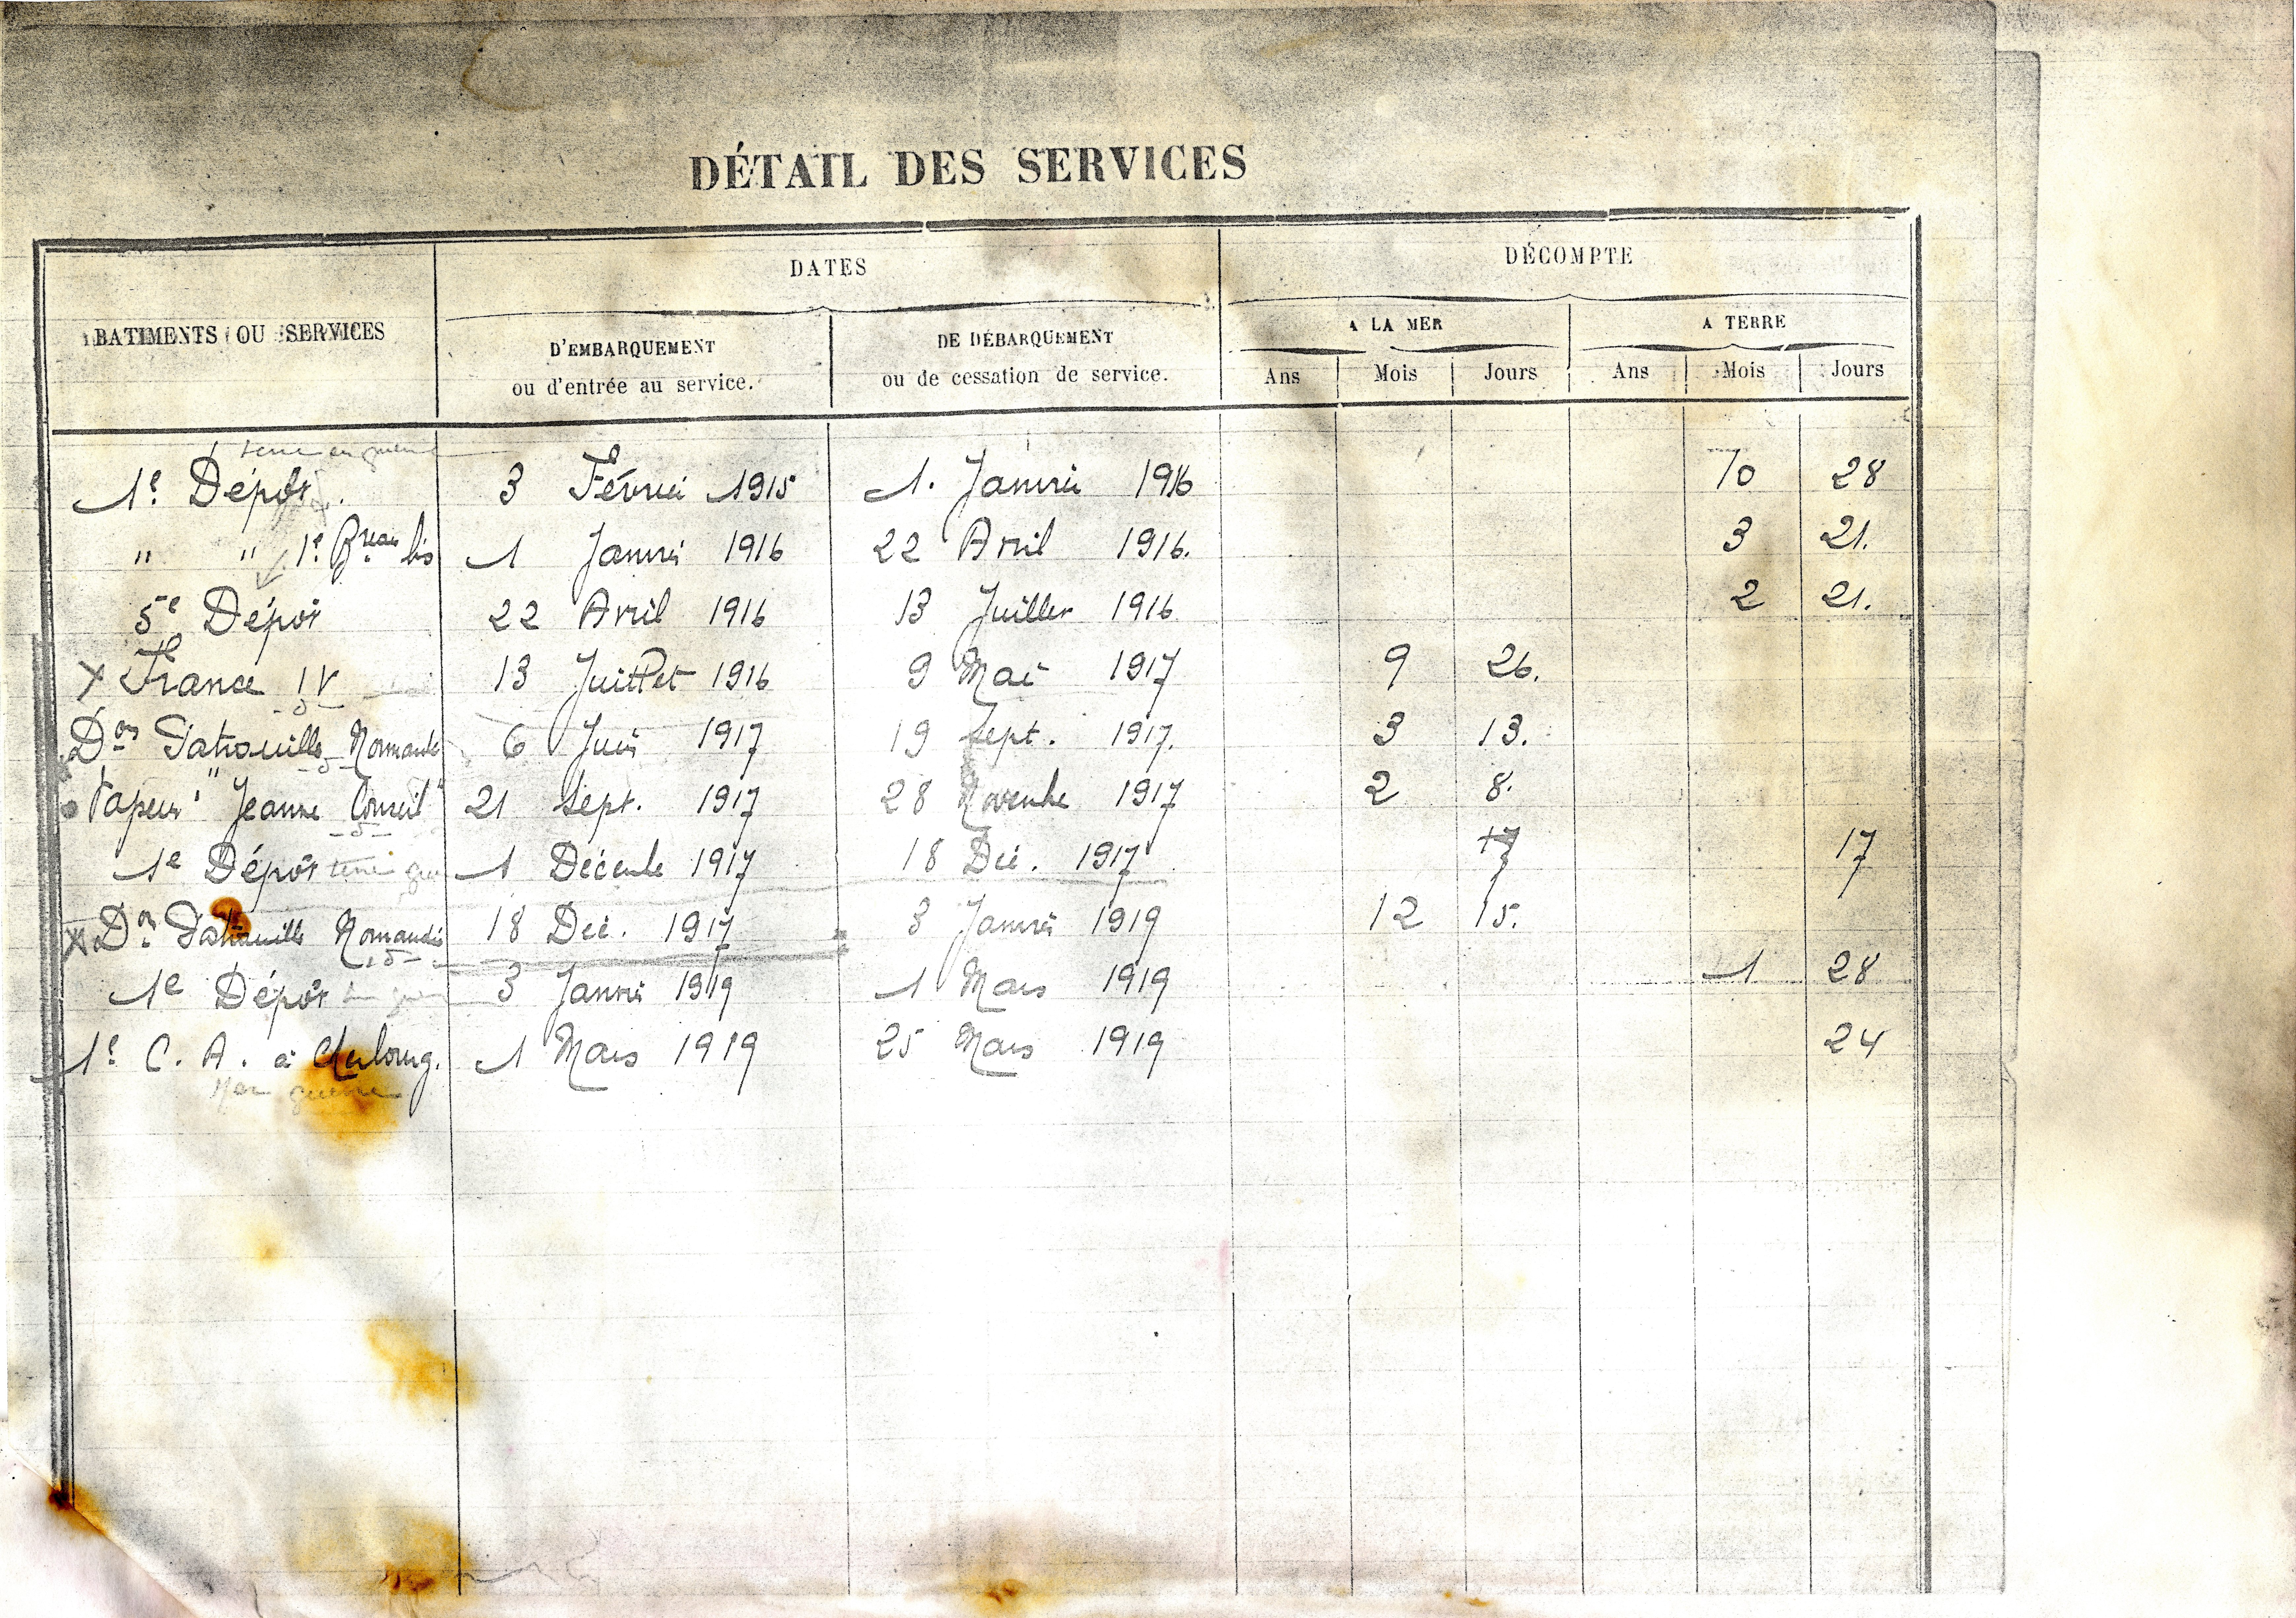 DÉTAIL DES SERVICES
BATIMENTS OU SERVICES
DATES
DÉCOMPTE
D'EMBARQUEMENT
ou d'entrée au service.
DE DÉBARQUEMENT
ou de cessation de service.
A LA MER
A TERRE
Ans Mois Jours Ans Mois Jours
terre en guerre
1e Dépôt. 3 Février 1915 1. Janvier 1916 10 28
" " 1e Breau bis 1 Janvier 1916 22 Avril 1916. 3 21.
5e Dépôt 22 Avril 1916 13 Juillet 1916 2 21.
X France IV 13 Juillet 1916 9 Mai 1917 9 26.
Don Patrouille Normandie 6 Juin 1917 19 Sept. 1917. 3 13.
Vapeur "Jeanne Conseil" 21 Sept. 1917 28 Novembre 1917 2 8.
1e Dépôt terre 1 Décembre 1917 18 Déc. 1917 17 17
X Don Patrouille Normandie 18 Déc. 1917 3 Janvier 1919 12 15.
1e Dépôt 3 Janvier 1919 1 Mars 1919 1 28
1e C. A. à Cherbourg. 1 Mars 1919 25 Mars 1919 24
guerre